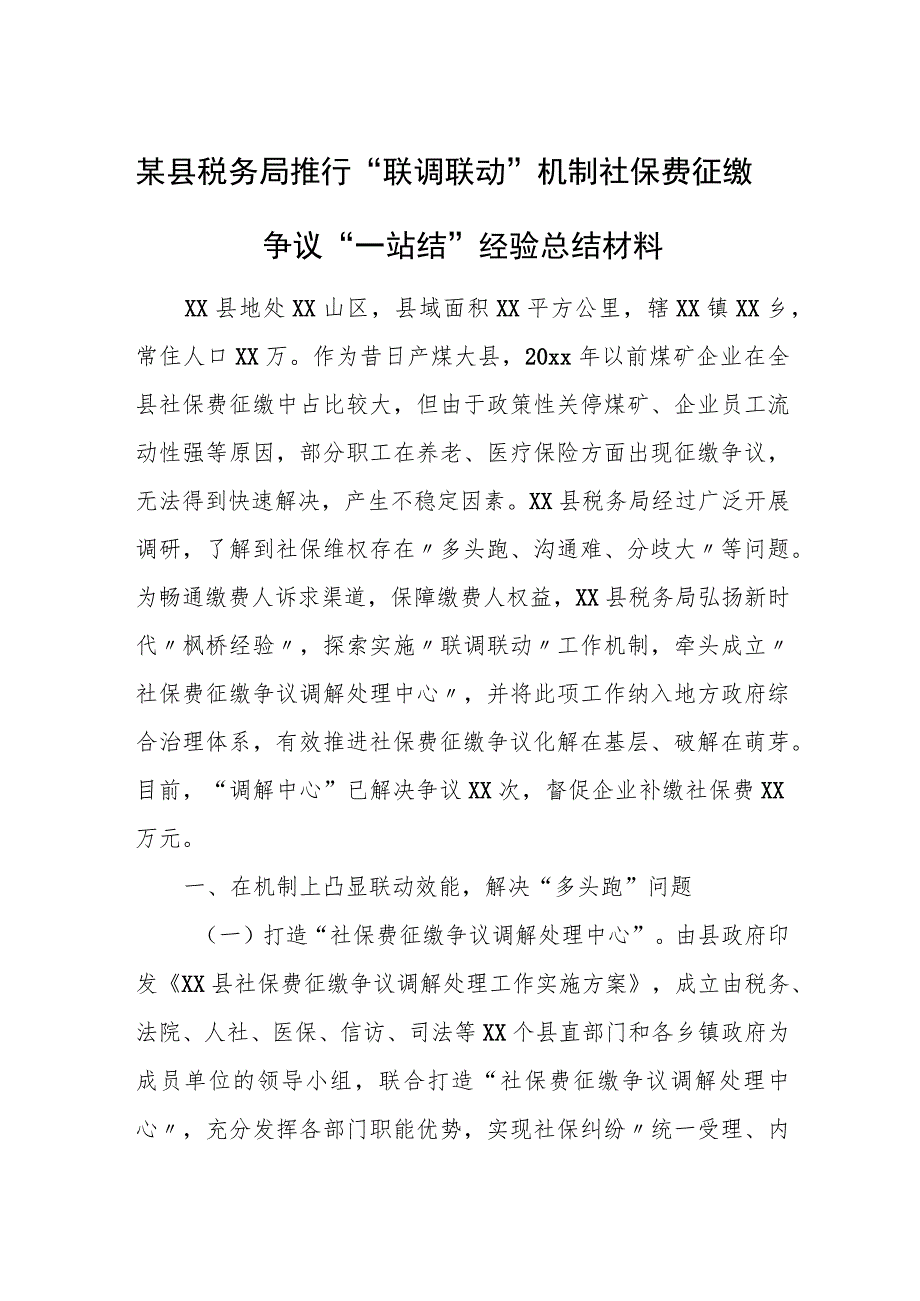 某县税务局推行“联调联动”机制社保费征缴
争议“一站结”经验总结材料
XX县地处XX山区，县域面积XX平方公里，辖XX镇XX乡，
常住人口XX万。作为昔日产煤大县，20xx年以前煤矿企业在全
县社保费征缴中占比较大，但由于政策性关停煤矿、企业员工流
动性强等原因，部分职工在养老、医疗保险方面出现征缴争议，
无法得到快速解决，产生不稳定因素。XX县税务局经过广泛开展
调研，了解到社保维权存在〃多头跑、沟通难、分歧大〃等问题。
为畅通缴费人诉求渠道，保障缴费人权益，XX县税务局弘扬新时
代〃枫桥经验〃，探索实施〃联调联动〃工作机制，牵头成立〃
社保费征缴争议调解处理中心〃，并将此项工作纳入地方政府综
合治理体系，有效推进社保费征缴争议化解在基层、破解在萌芽。
目前，“调解中心”已解决争议XX次，督促企业补缴社保费XX
万元。
一、在机制上凸显联动效能，解决“多头跑”问题
（一）打造“社保费征缴争议调解处理中心”。由县政府印
发《XX县社保费征缴争议调解处理工作实施方案》，成立由税务、
法院、人社、医保、信访、司法等XX个县直部门和各乡镇政府为
成员单位的领导小组，联合打造“社保费征缴争议调解处理中
心〃，充分发挥各部门职能优势，实现社保纠纷〃统一受理、内